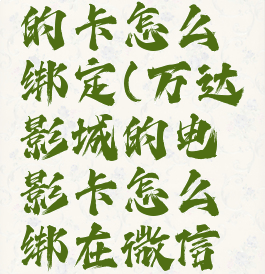 的卡怎么
绑定(万达
影城的电
影卡怎么
绑在微信